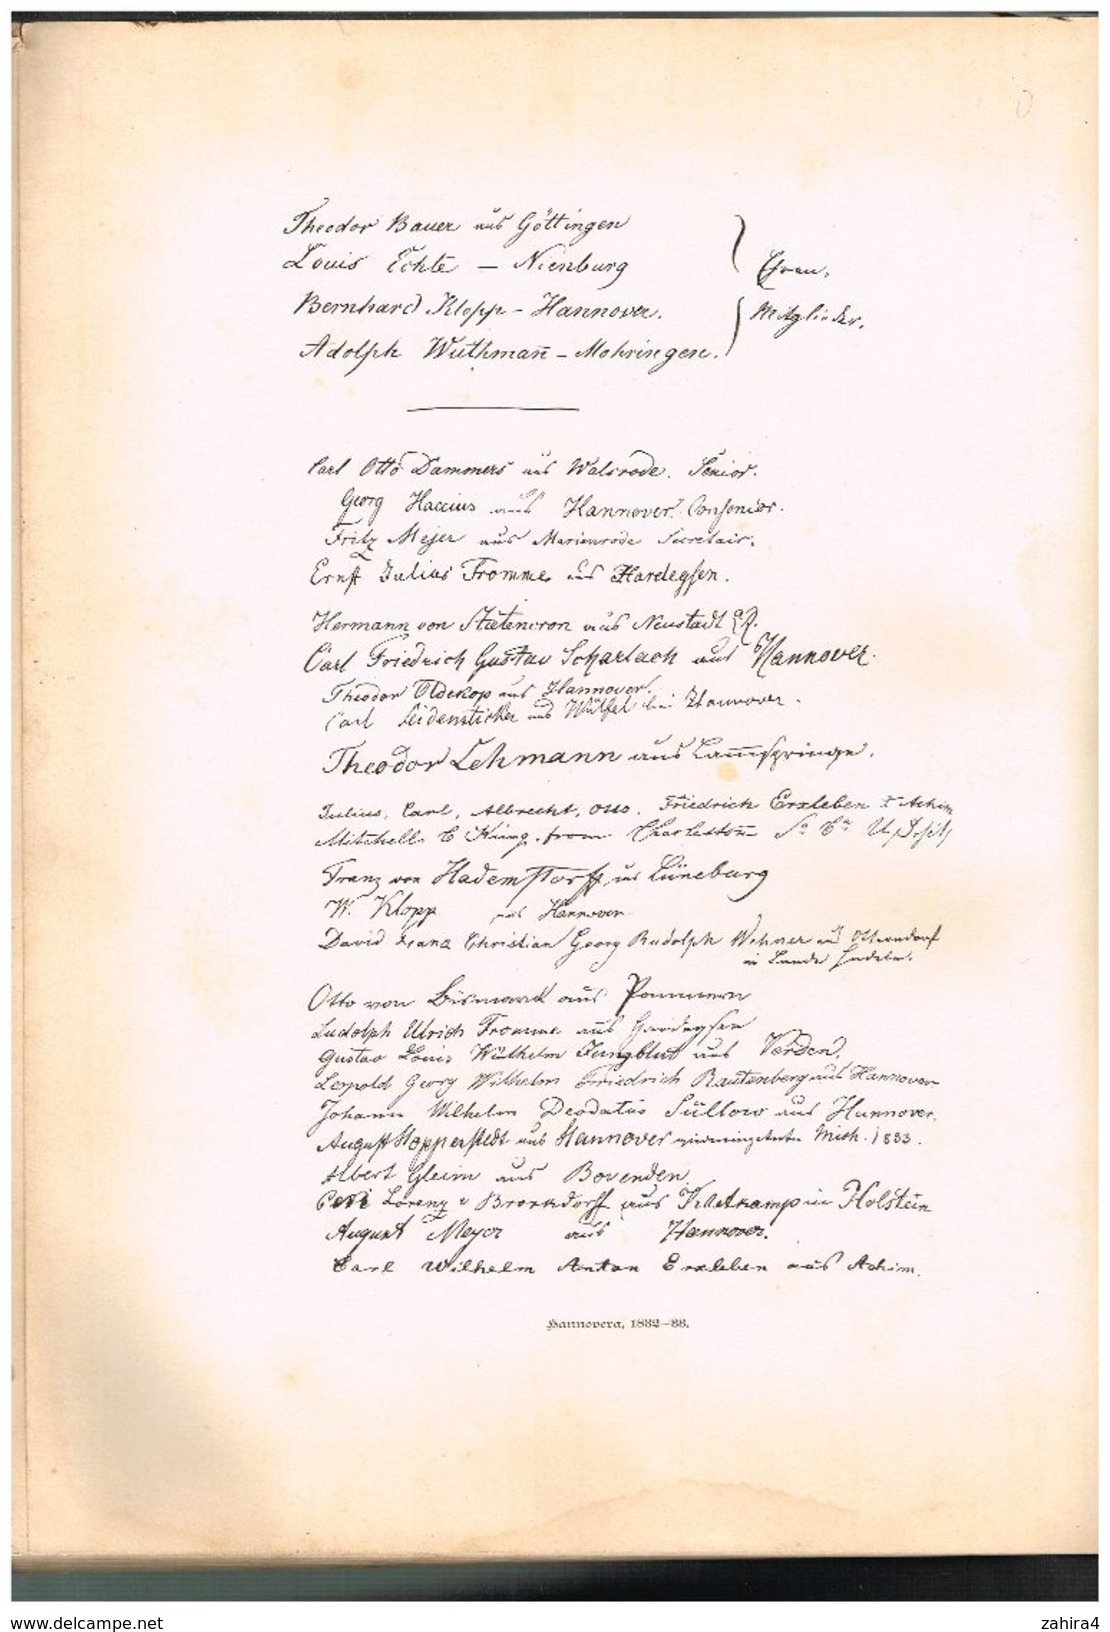 Theodor Bauer aus Göttingen
Louis Echte — Nienburg
Ehren-
Bernhard Klopp - Hannover.
Mitglieder.
Adolph Wuthmañ - Mohringen.
Carl Otto Dammers aus Walsrode. Senior.
Georg Haccius aus Hannover. Consenior.
Fritz Mejer aus Marienrode Secretair.
Ernst Julius Fromme aus Hardegsen.
Hermann von Neustadt
Carl Friedrich Gustav Scharlach aus Hannover.
Theodor Oldekop aus Hannover.
Carl Leidensticker aus Wülfel bei Hannover.
Theodor Lehmann aus Lam̄springe.
Julius, Carl, Albrecht, Otto, Friedrich Erxleben Achim
Mitchell C King. from Charlestown So Ca
Franz von Hademstorff aus Lüneburg
W. Klopp aus Hannover
David Franz Christian Georg Rudolph Wehner aus Otterndorf
im Lande Hadeln.
Otto von Bismarck aus Pommern
Ludolph Ulrich Fromme aus Hardegsen
Gustav Louis Wilhelm Jungblut aus Verden.
Leopold Georg Wilhelm Friedrich Rautenberg aus Hannover
Johann Wilhelm Deodatus Süllow aus Hannover.
August Hopperstedt aus Hannover Mich. 1833.
Albert Gleim aus Bovenden
Lorenz v Brockdorff aus in Holstein
August Meyer aus Hannover.
Carl Wilhelm Anton Erxleben aus Achim.
Hannovera, 1832–33.
www.delcampe.net
zahira4